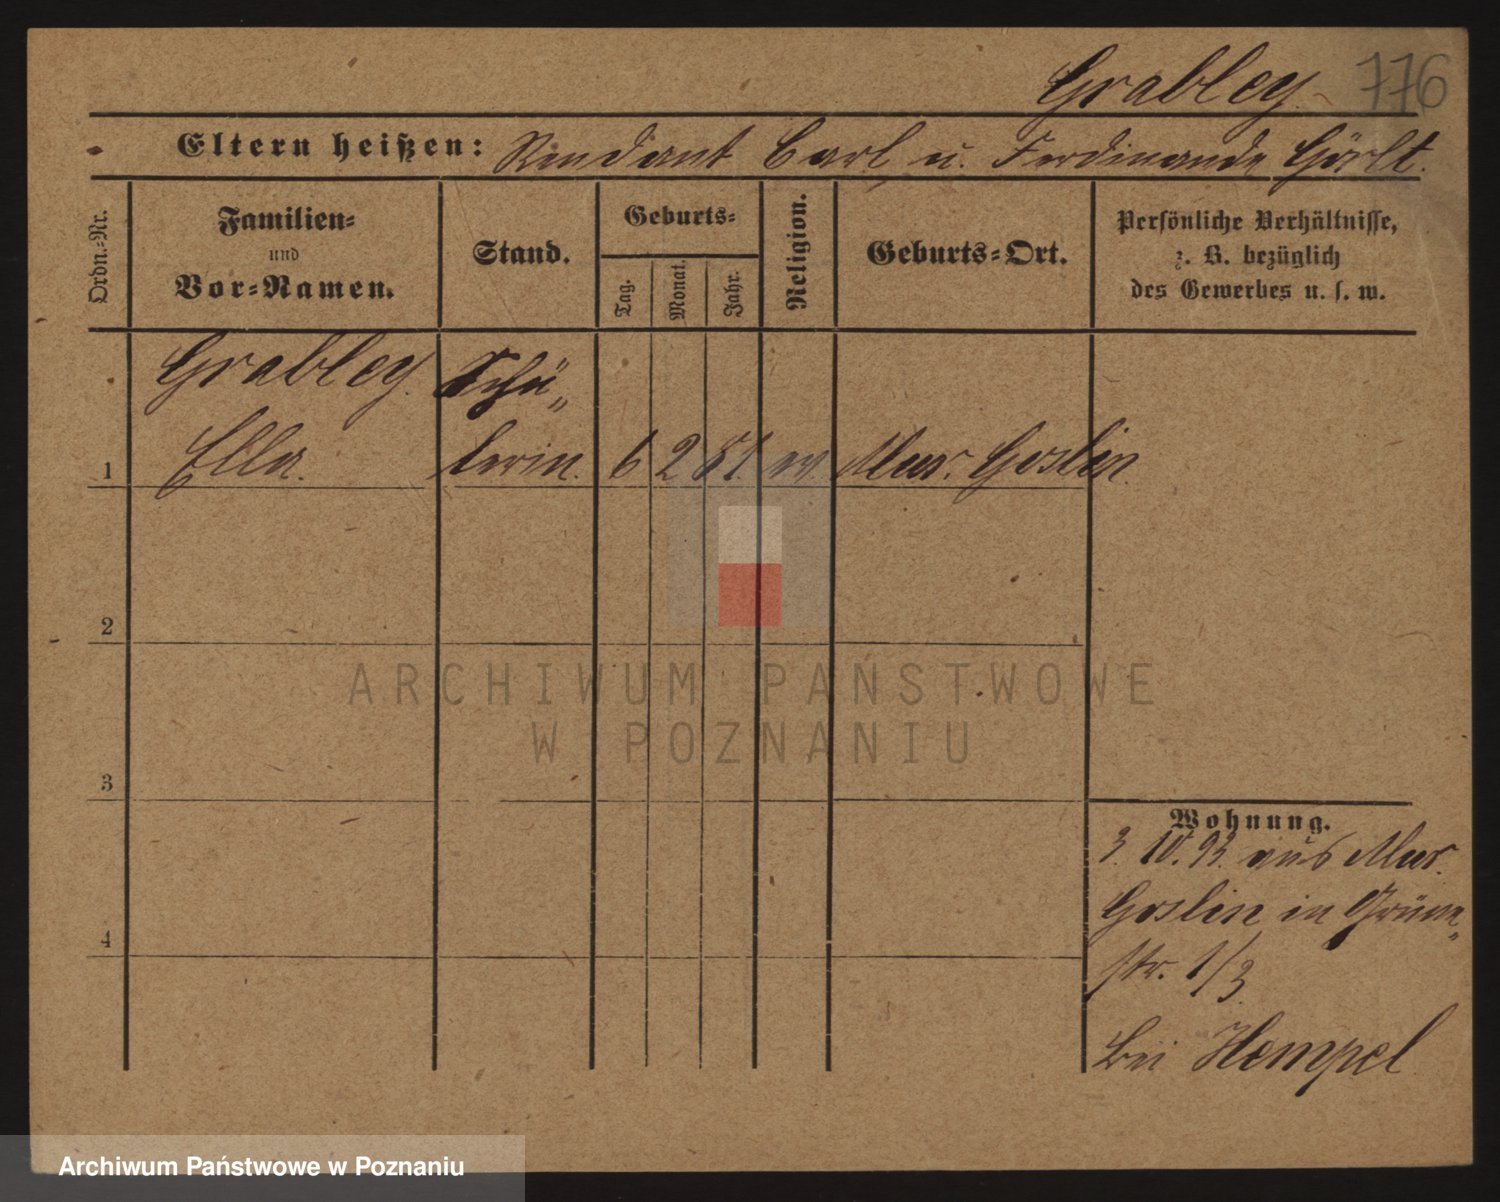 Grabley 776
Eltern heißen: Rendant Carl u. Ferdinande Görlt.
Ordn.-Nr.
Familien-
und
Vor-Namen.
Stand.
Geburts-
Tag.
Monat.
Jahr.
Religion.
Geburts-Ort.
Persönliche Verhältnisse,
z. B. bezüglich
des Gewerbes u. s. w.
Grabley Schü„
1 Ella. lerin. 6 2 81. ev. Mur. Goslin
2
3
4
Wohnung.
3. 10. 93. aus Mur.
Goslin in Grüne„
str. 1/3
bei Hempel
ARCHIWUM PAŃSTWOWE
W POZNANIU
Archiwum Państwowe w Poznaniu